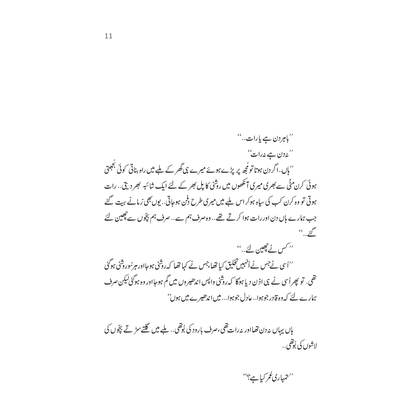 11
”باہر دن ہے یا رات..“
”نہ دن ہے نہ رات“
”ہاں۔ اگر دن ہوتا تو مجھ پر پڑے ہوئے میرے ہی گھر کے ملبے میں راہ بناتی کوئی بجھتی
ہوئی کرن مٹی سے بھری میری آنکھوں میں روشنی کا پل بھر کے لئے ایک شائبہ بھر دیتی.. رات
ہوتی تو وہ کرن کب کی سیاہ ہو کر اس ملبے میں میری طرح دفن ہو جاتی.. یوں بھی زمانے بیت گئے
جب ہمارے ہاں دن اور رات ہوا کرتے تھے.. وہ صرف ہم سے.. صرف ہم بچوں سے چھین لئے
گئے..“
”کس نے چھین لئے..“
”اُسی نے جس نے اُنہیں تخلیق کیا تھا جس نے کہا تھا کہ روشنی ہو جا اور ہر سُو روشنی ہو گئی
تھی. تو پھر اُسی نے ہی اذن دیا ہو گا کہ روشنی واپس اندھیروں میں گم ہو جا اور وہ ہو گئی لیکن صرف
ہمارے لئے کہ وہ قادر جو ہوا.. عادل جو ہوا... میں اندھیرے میں ہوں“
ہاں یہاں نہ دن تھا اور نہ رات تھی، صرف بارود کی بُو تھی.. ملبے میں گلتے سڑتے بچوں کی
لاشوں کی بُو تھی..
”تمہاری عمر کیا ہے؟“